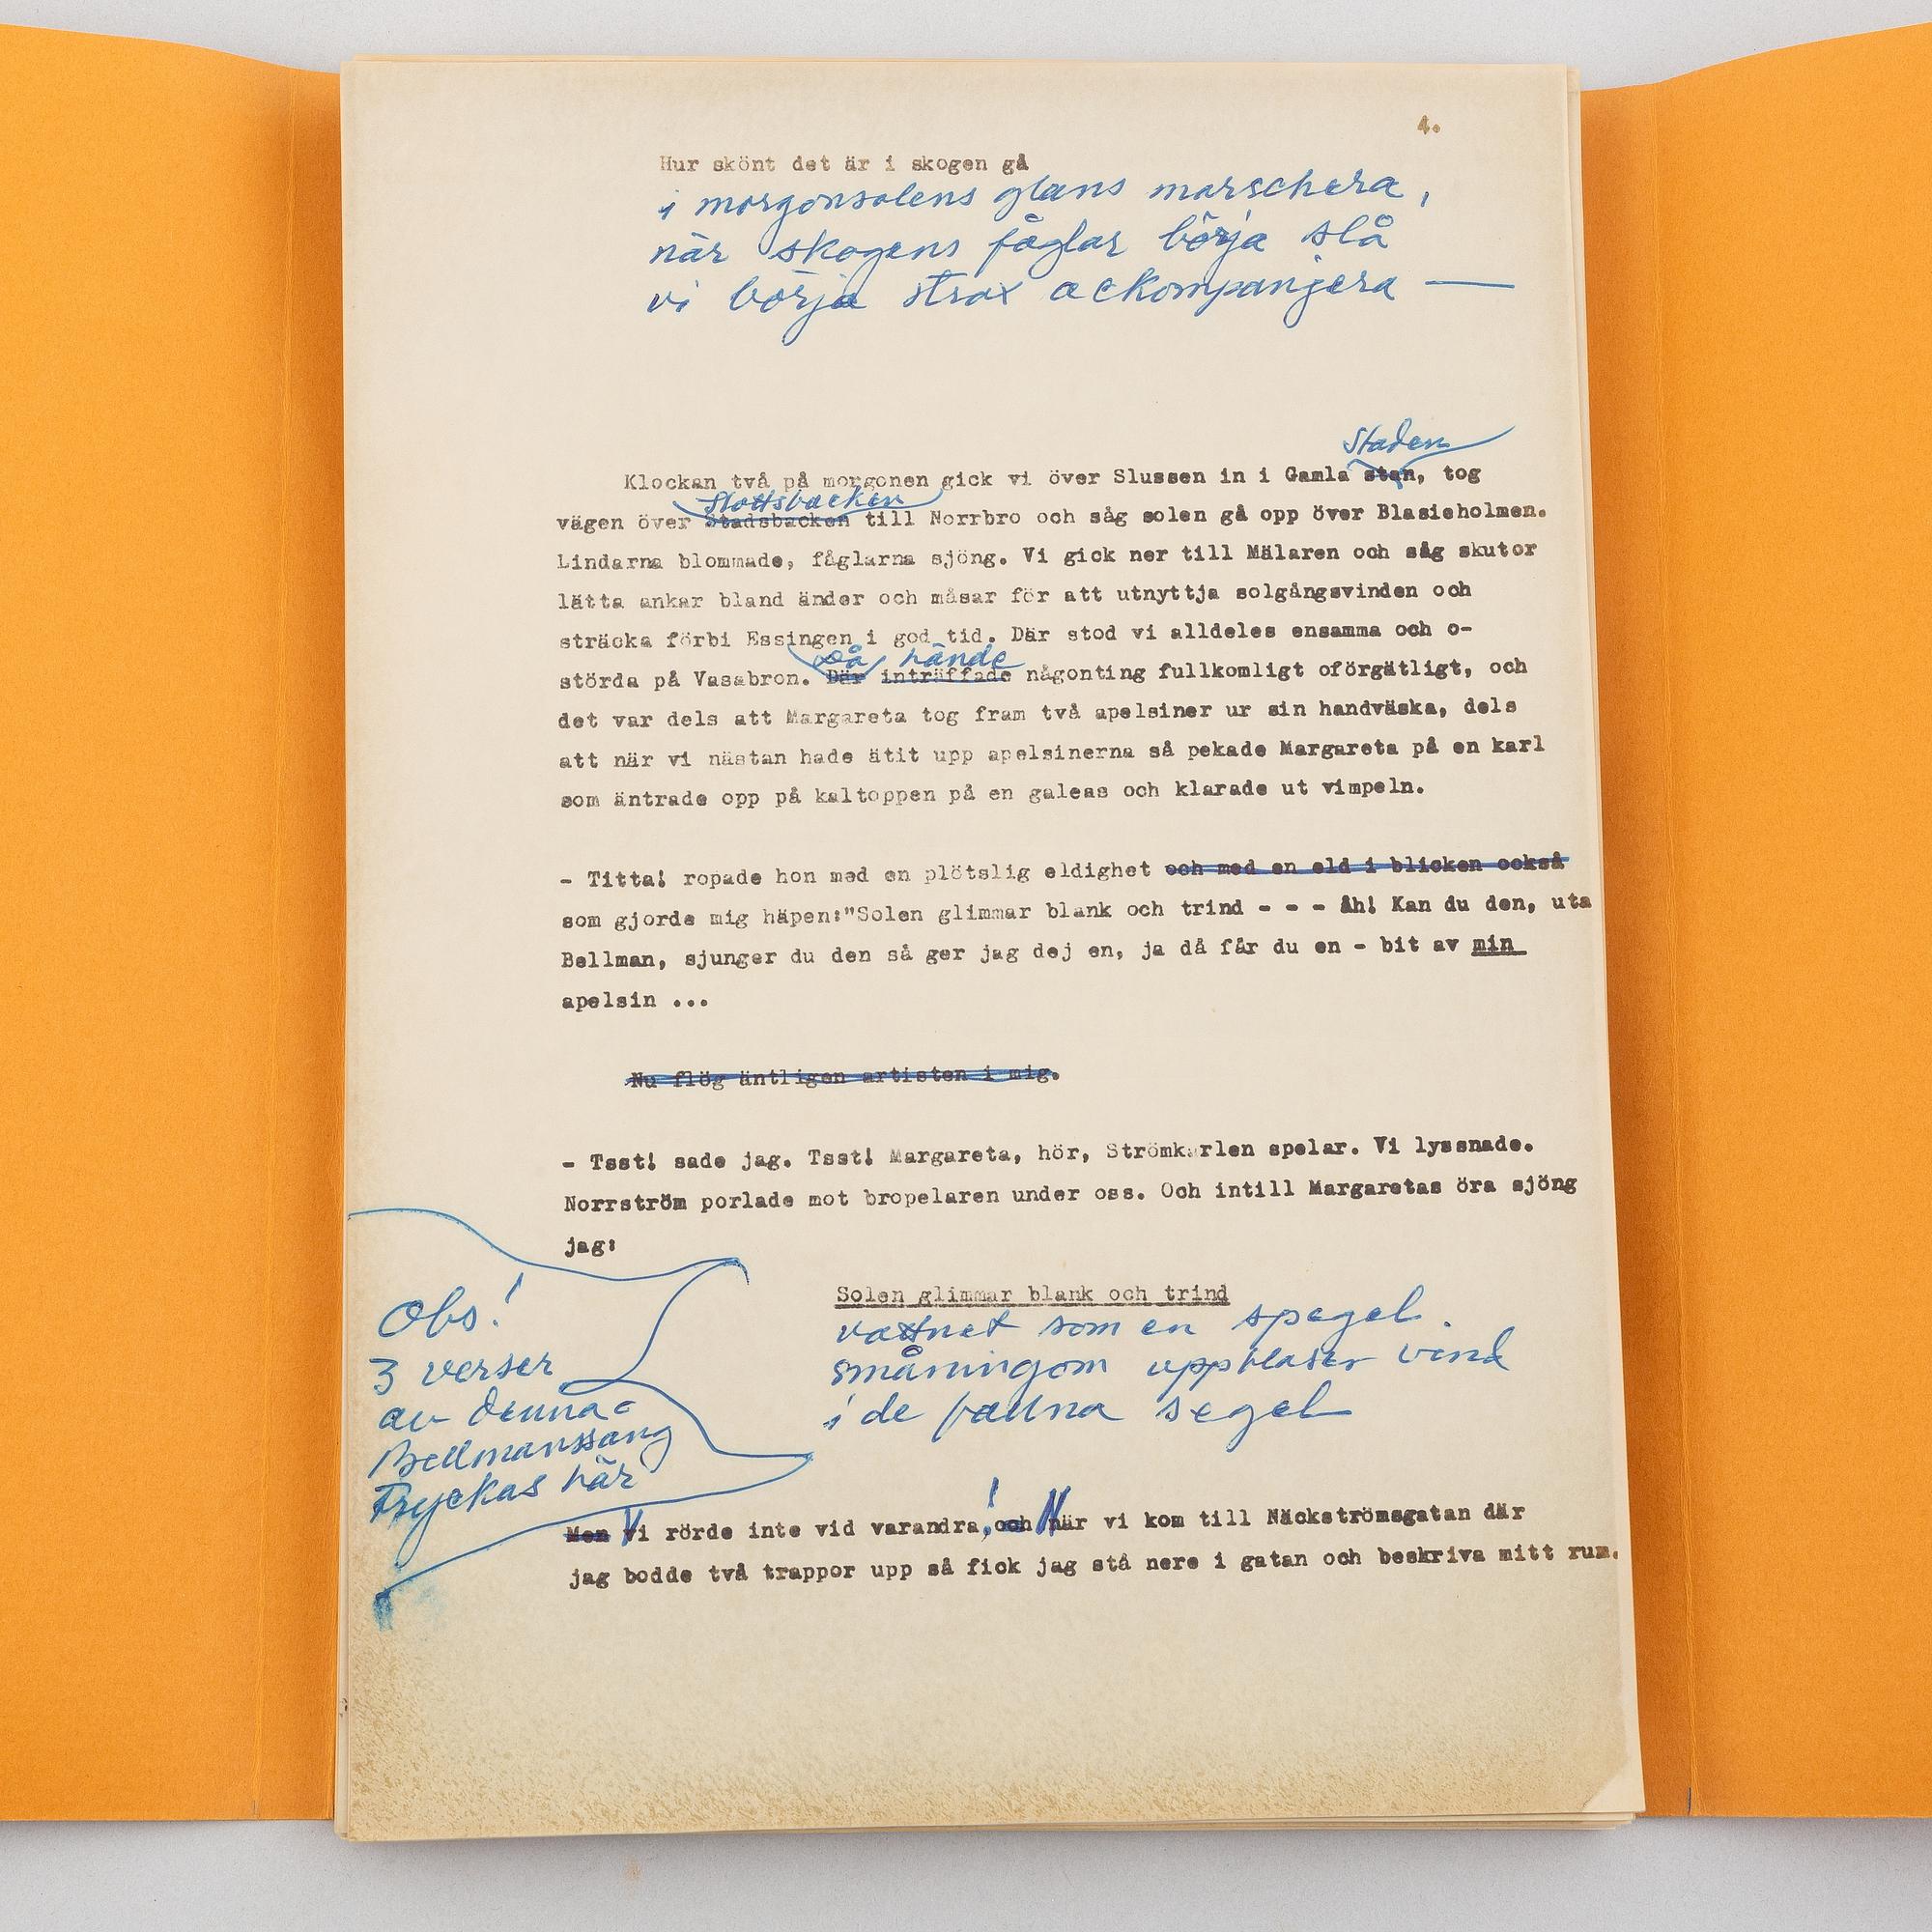 4.
Hur skönt det är i skogen gå
i morgonsolens glans marschera,
när skogens fåglar börja slå
vi börja strax ackompanjera —
staden
Klockan två på morgonen gick vi över Slussen in i Gamla stan, tog
Slottsbacken
vägen över Stadsbacken till Norrbro och såg solen gå opp över Blasieholmen.
Lindarna blommade, fåglarna sjöng. Vi gick ner till Mälaren och såg skutor
lätta ankar bland änder och måsar för att utnyttja solgångsvinden och
sträcka förbi Essingen i god tid. Där stod vi alldeles ensamma och o-
Då hände
störda på Vasabron. Där inträffade någonting fullkomligt oförgätligt, och
det var dels att Margareta tog fram två apelsiner ur sin handväska, dels
att när vi nästan hade ätit upp apelsinerna så pekade Margareta på en karl
som äntrade opp på kaltoppen på en galeas och klarade ut vimpeln.
- Titta! ropade hon med en plötslig eldighet och med en eld i blicken också
som gjorde mig häpen:"Solen glimmar blank och trind - - - Åh! Kan du den, uta
Bellman, sjunger du den så ger jag dej en, ja då får du en - bit av min
apelsin ...
Nu flög äntligen artisten i mig.
- Tsst! sade jag. Tsst! Margareta, hör, Strömkarlen spelar. Vi lyssnade.
Norrström porlade mot bropelaren under oss. Och intill Margaretas öra sjöng
jag:
Solen glimmar blank och trind
vattnet som en spegel.
småningom uppblaser vind
i de fallna segel
Obs!
3 verser
av denna
Bellmanssång
Tryckas här
Men Vi rörde inte vid varandra,! och När vi kom till Näckströmsgatan där
jag bodde två trappor upp så fick jag stå nere i gatan och beskriva mitt rum.